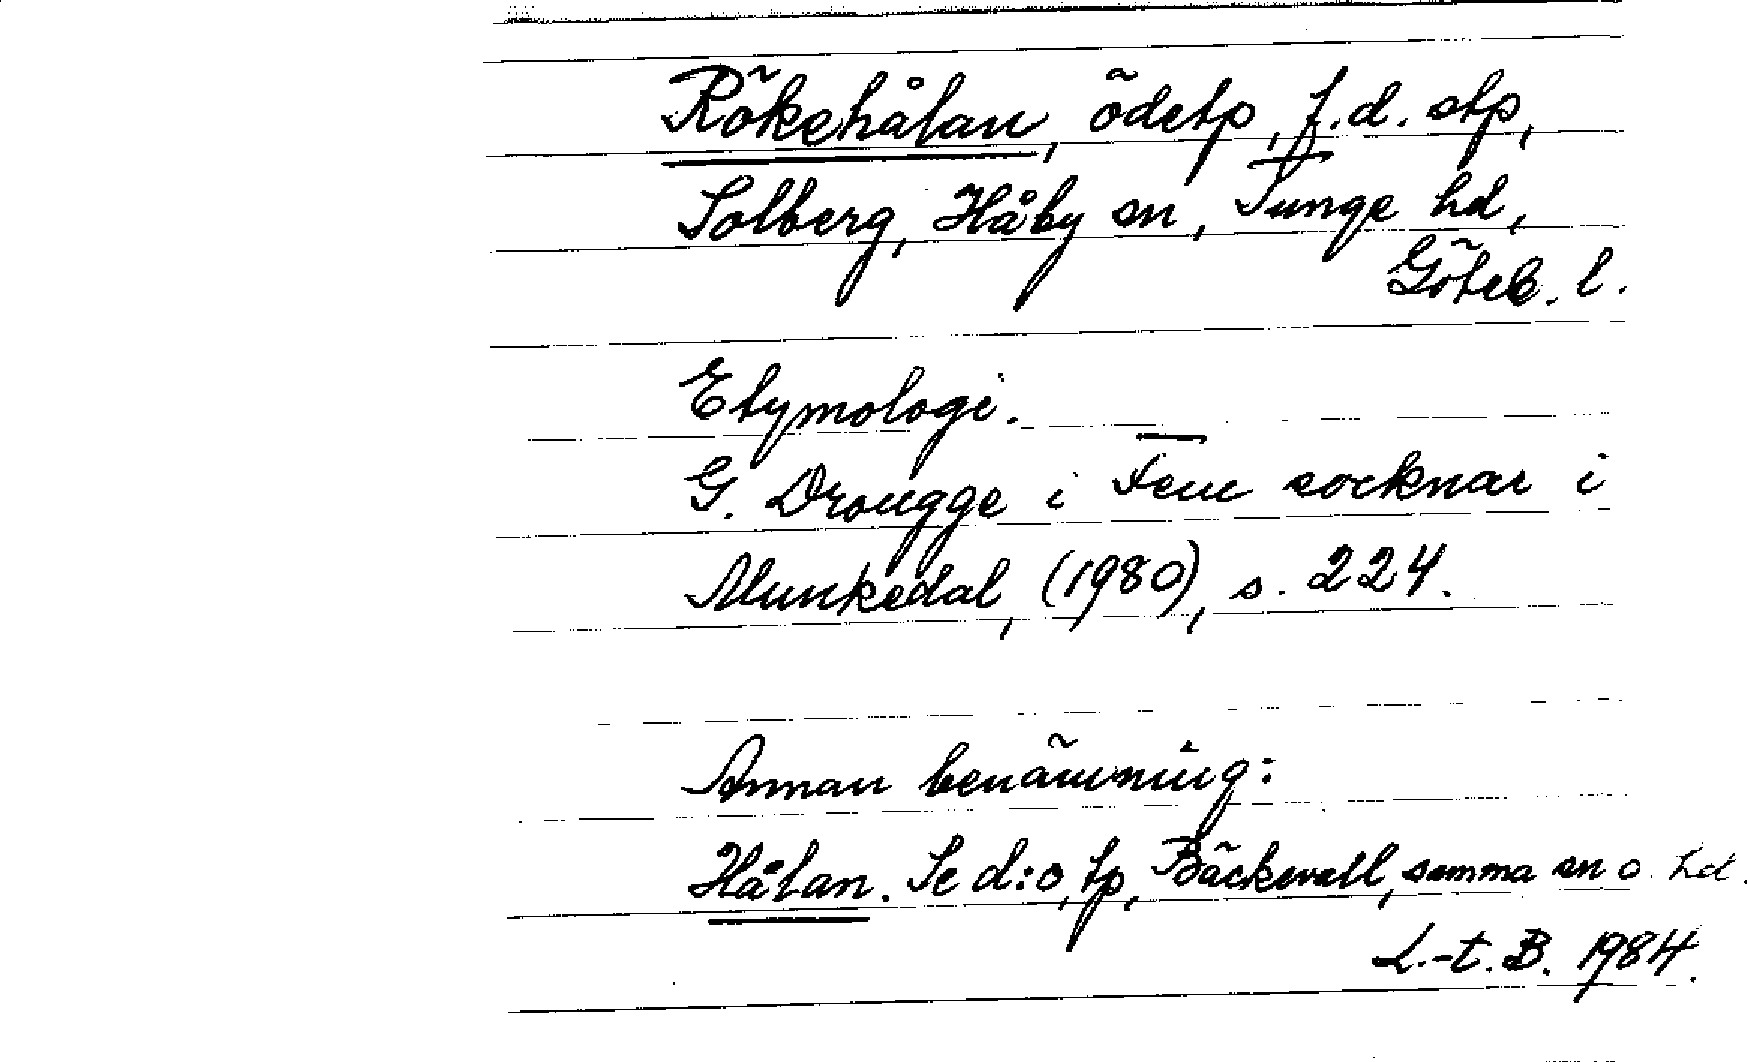 Rökehålan, ödetp, f.d. stp,
Solberg, Håby sn, Tunge hd,
Göteb. l.
Etymologi.
G. Drougge i Fem socknar i
Munkedal, (1980), s. 224.
Annan benämning:
Hålan. Se d:o, tp, Bäckevall, samma sn o hd.
L.-t. B. 1984.